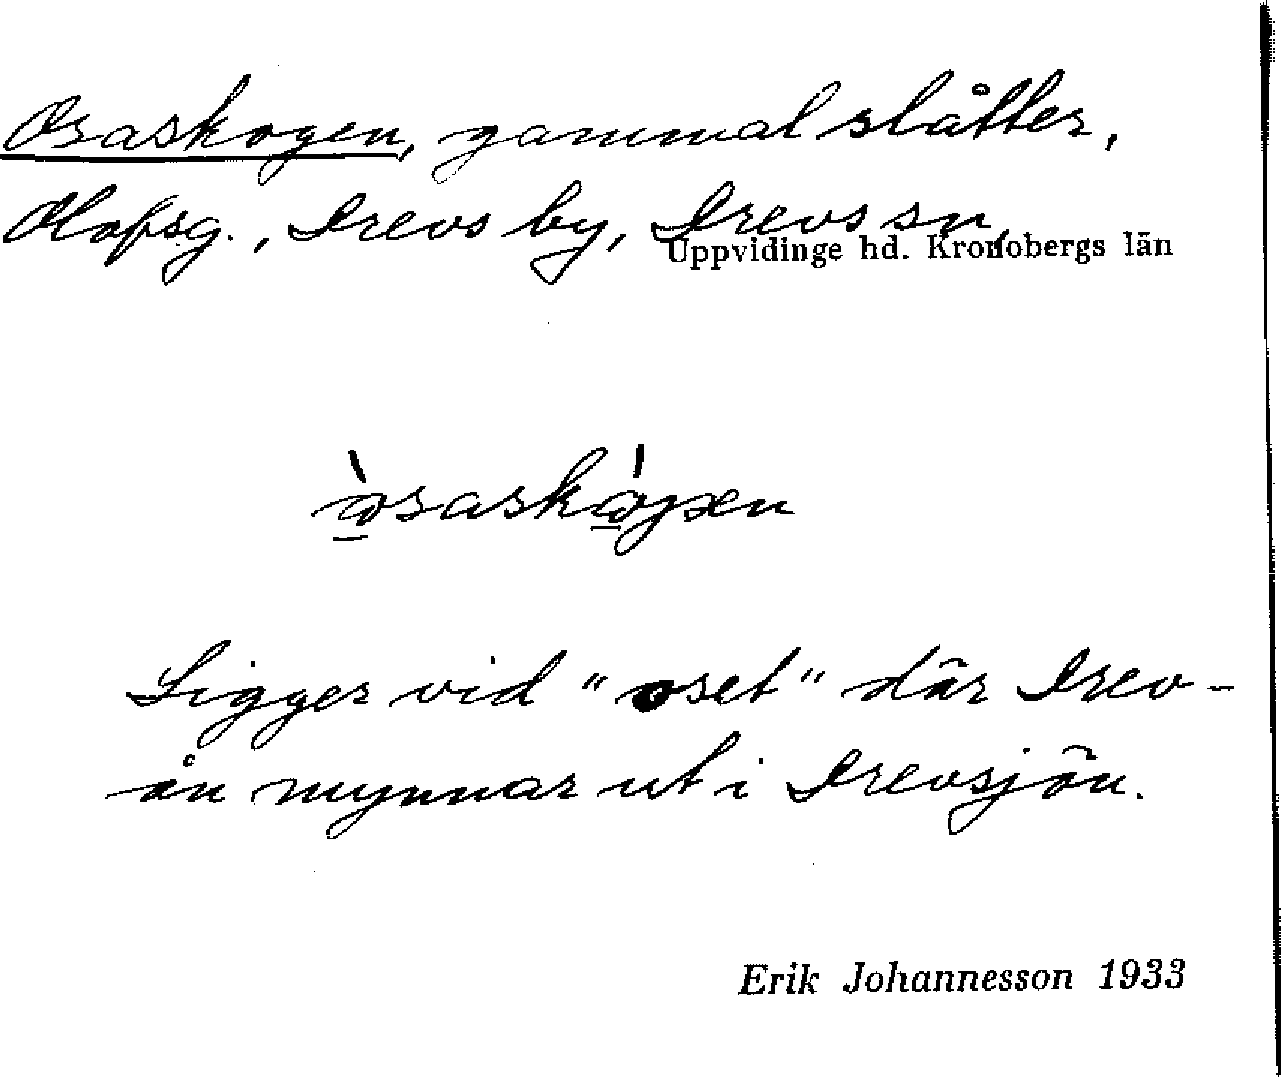 Osaskogen, gammal slåtter,
Olofsg., Drevs by, Drevs sn,
Uppvidinge hd. Kronobergs län
Ligger vid "oset" där Drev-
ån mynnar ut i Drevsjön.
Erik Johannesson 1933